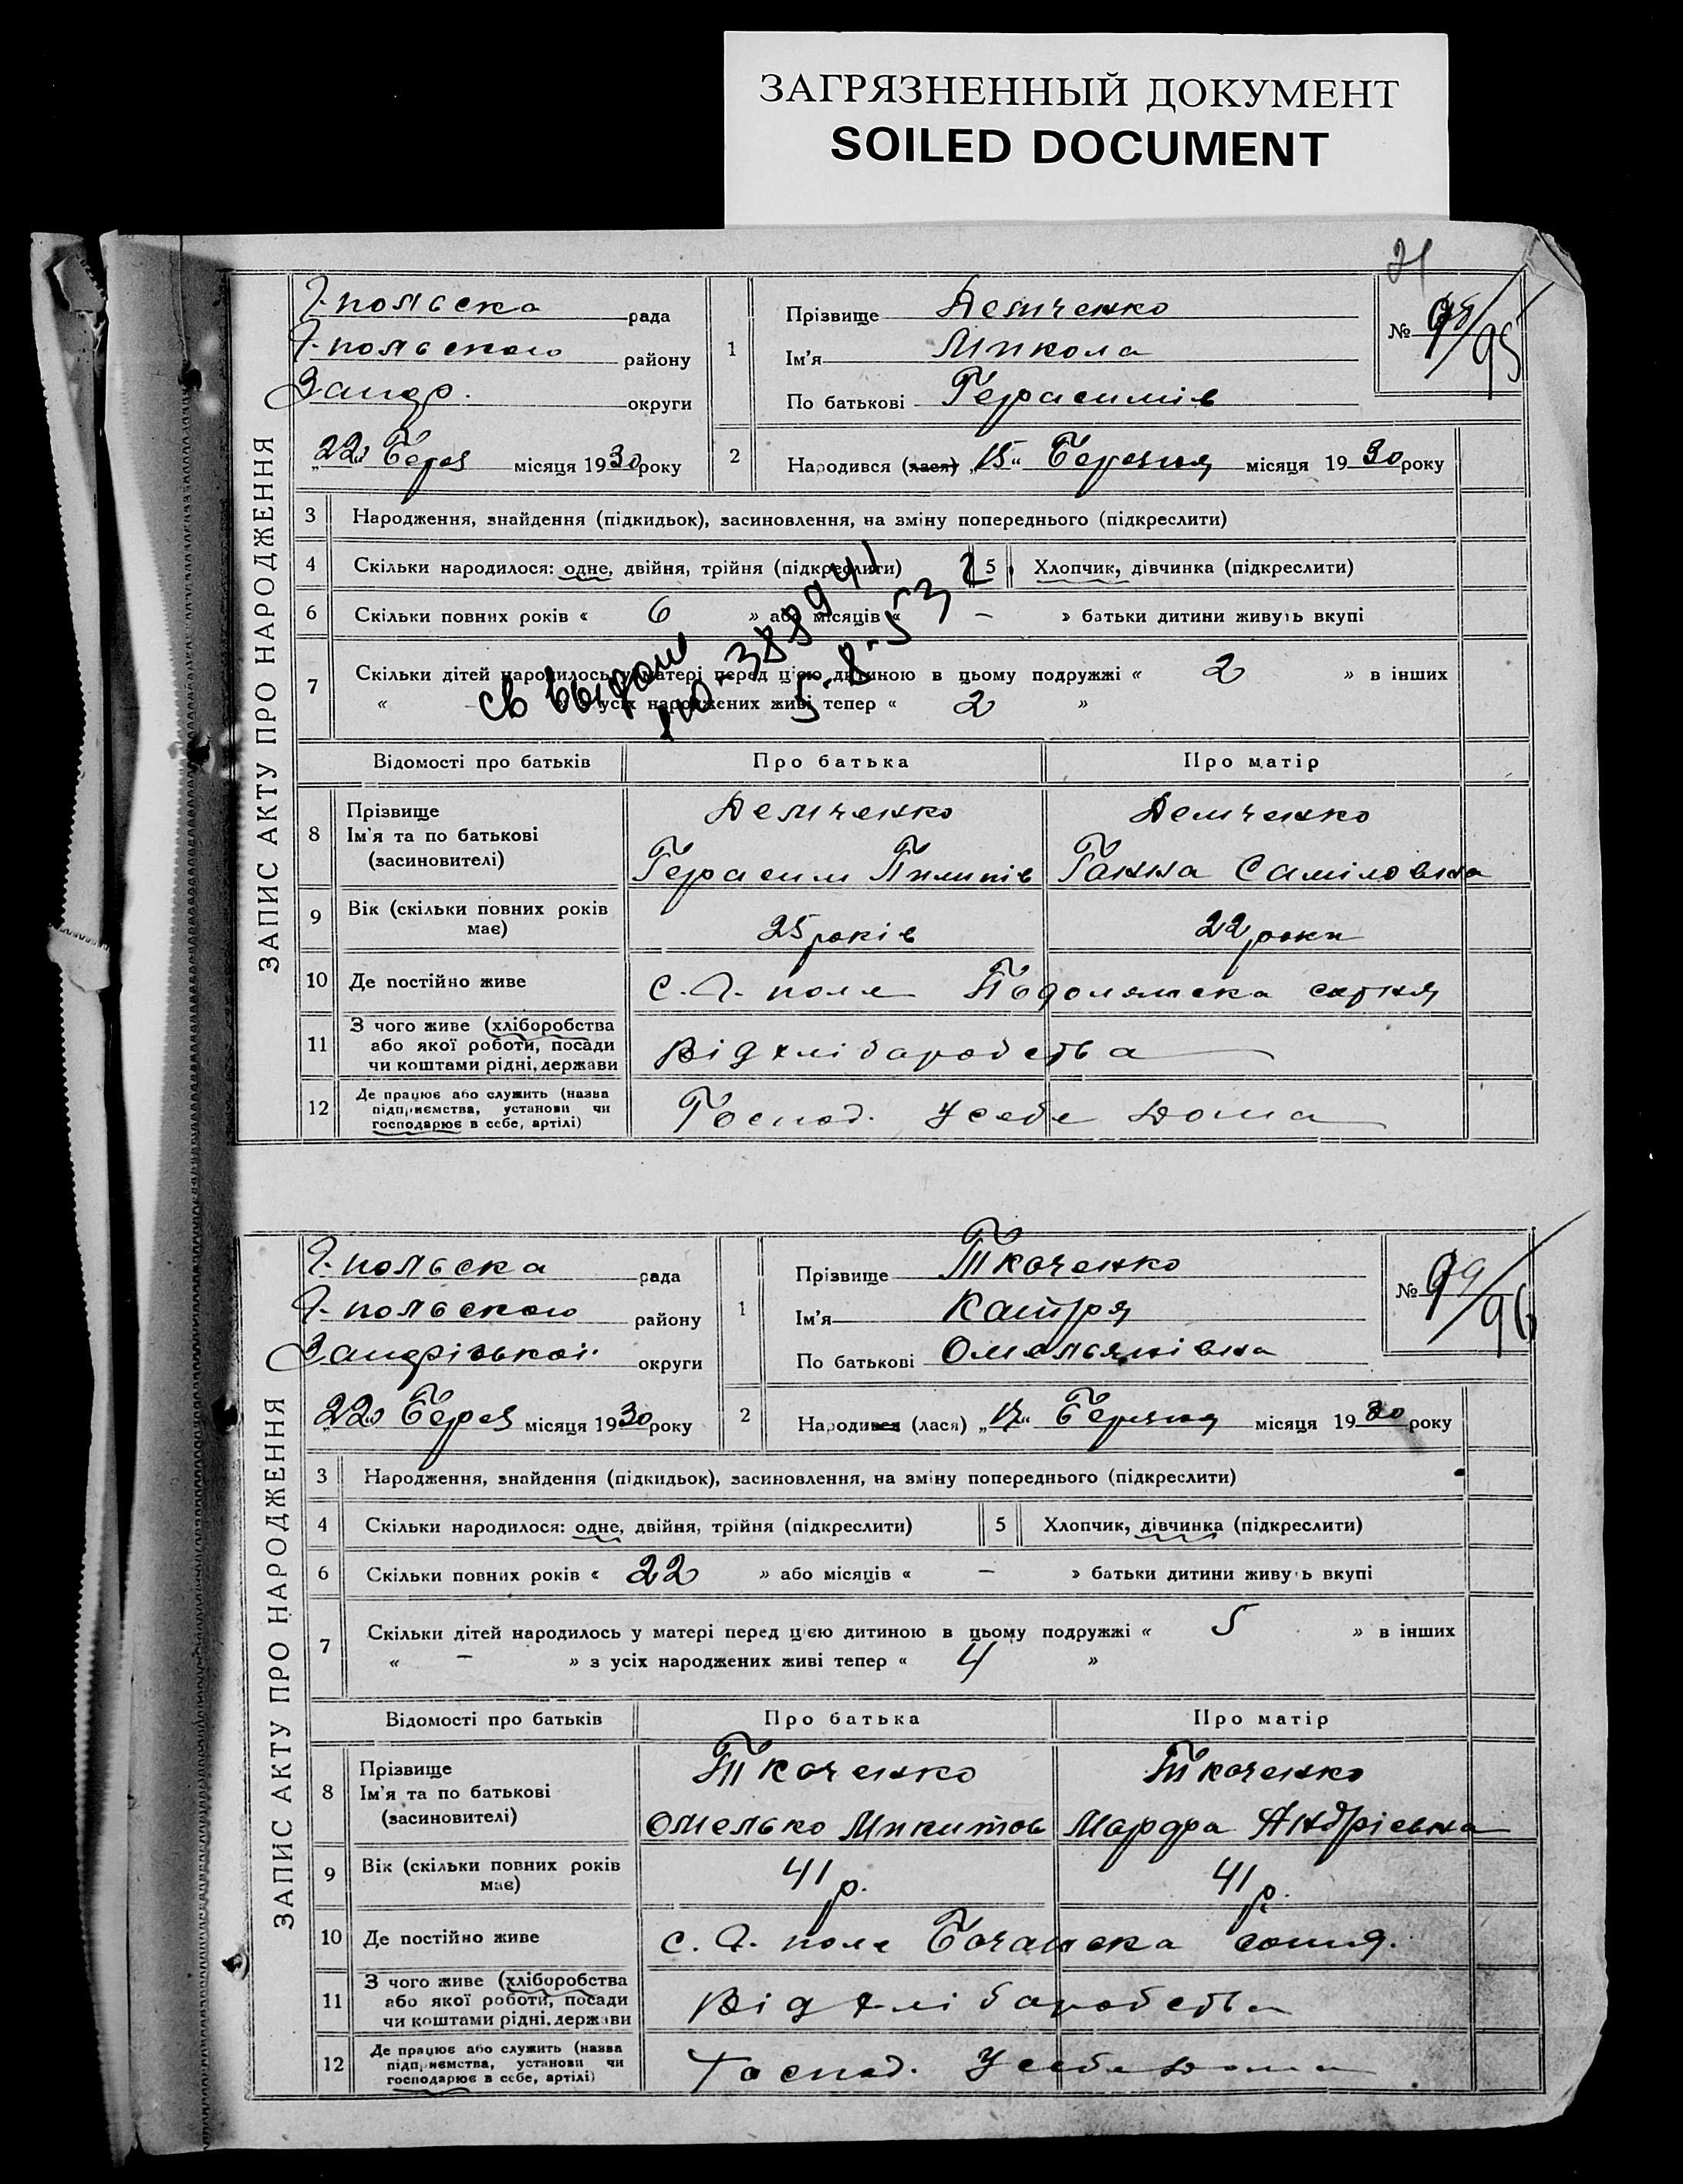 ЗАГРЯЗНЕННЫЙ ДОКУМЕНТ
SOILED DOCUMENT
ЗАПИС АКТУ ПРО НАРОДЖЕННЯ
Г. польска рада
Г. польского району
Запор. округи
1
Прізвище Демченко
Ім'я Микола
По батькові Герасимів
№ 98/95
„22“ Берез місяця 1930 року
2 Народився (лася) „15“ Березня місяця 1930 року
3 Народження, знайдення (підкидьок), засиновлення, на зміну попереднього (підкреслити)
4 Скільки народилося: одне, двійня, трійня (підкреслити) 5 Хлопчик, дівчинка (підкреслити)
6 Скільки повних років « 6 » або місяців « – » батьки дитини живуть вкупі
7 Скільки дітей народилось у матері перед цією дитиною в цьому подружжі « 2 » в інших
« – » з усіх народжених живі тепер « 2 »
св выдано
388941
5-8-53
Відомості про батьків Про батька Про матір
8 Прізвище Ім'я та по батькові (засиновителі)
Демченко Демченко
Герасим Пилипів Ганна Саміловна
9 Вік (скільки повних років має) 25 років 22 роки
10 Де постійно живе С. Г. поле Подолянська сотня
11 З чого живе (хліборобства або якої роботи, посади чи коштами рідні, держави
Від хліборобства
12 Де працює або служить (назва підприємства, установи чи господарює в себе, артілі)
Господ. у себе дома
ЗАПИС АКТУ ПРО НАРОДЖЕННЯ
Г. польска рада
Г. польского району
округи
1
Прізвище Ткаченко
Ім'я Катря
По батькові Омельянівна
№ 99/96
„22“ Берез місяця 1930 року
2 Народився (лася) „17“ Березня місяця 1930 року
3 Народження, знайдення (підкидьок), засиновлення, на зміну попереднього (підкреслити)
4 Скільки народилося: одне, двійня, трійня (підкреслити) 5 Хлопчик, дівчинка (підкреслити)
6 Скільки повних років « 22 » або місяців « – » батьки дитини живуть вкупі
7 Скільки дітей народилось у матері перед цією дитиною в цьому подружжі « 5 » в інших
« – » з усіх народжених живі тепер « 4 »
Відомості про батьків Про батька Про матір
8 Прізвище Ім'я та по батькові (засиновителі)
Ткаченко Ткаченко
Омелько Микитов Марфа Андрієвна
9 Вік (скільки повних років має) 41 р. 41 р.
10 Де постійно живе с. Г. поле сотня.
11 З чого живе (хліборобства або якої роботи, посади чи коштами рідні, держави
Від хліборобства
12 Де працює або служить (назва підприємства, установи чи господарює в себе, артілі)
Господ. у себе дома